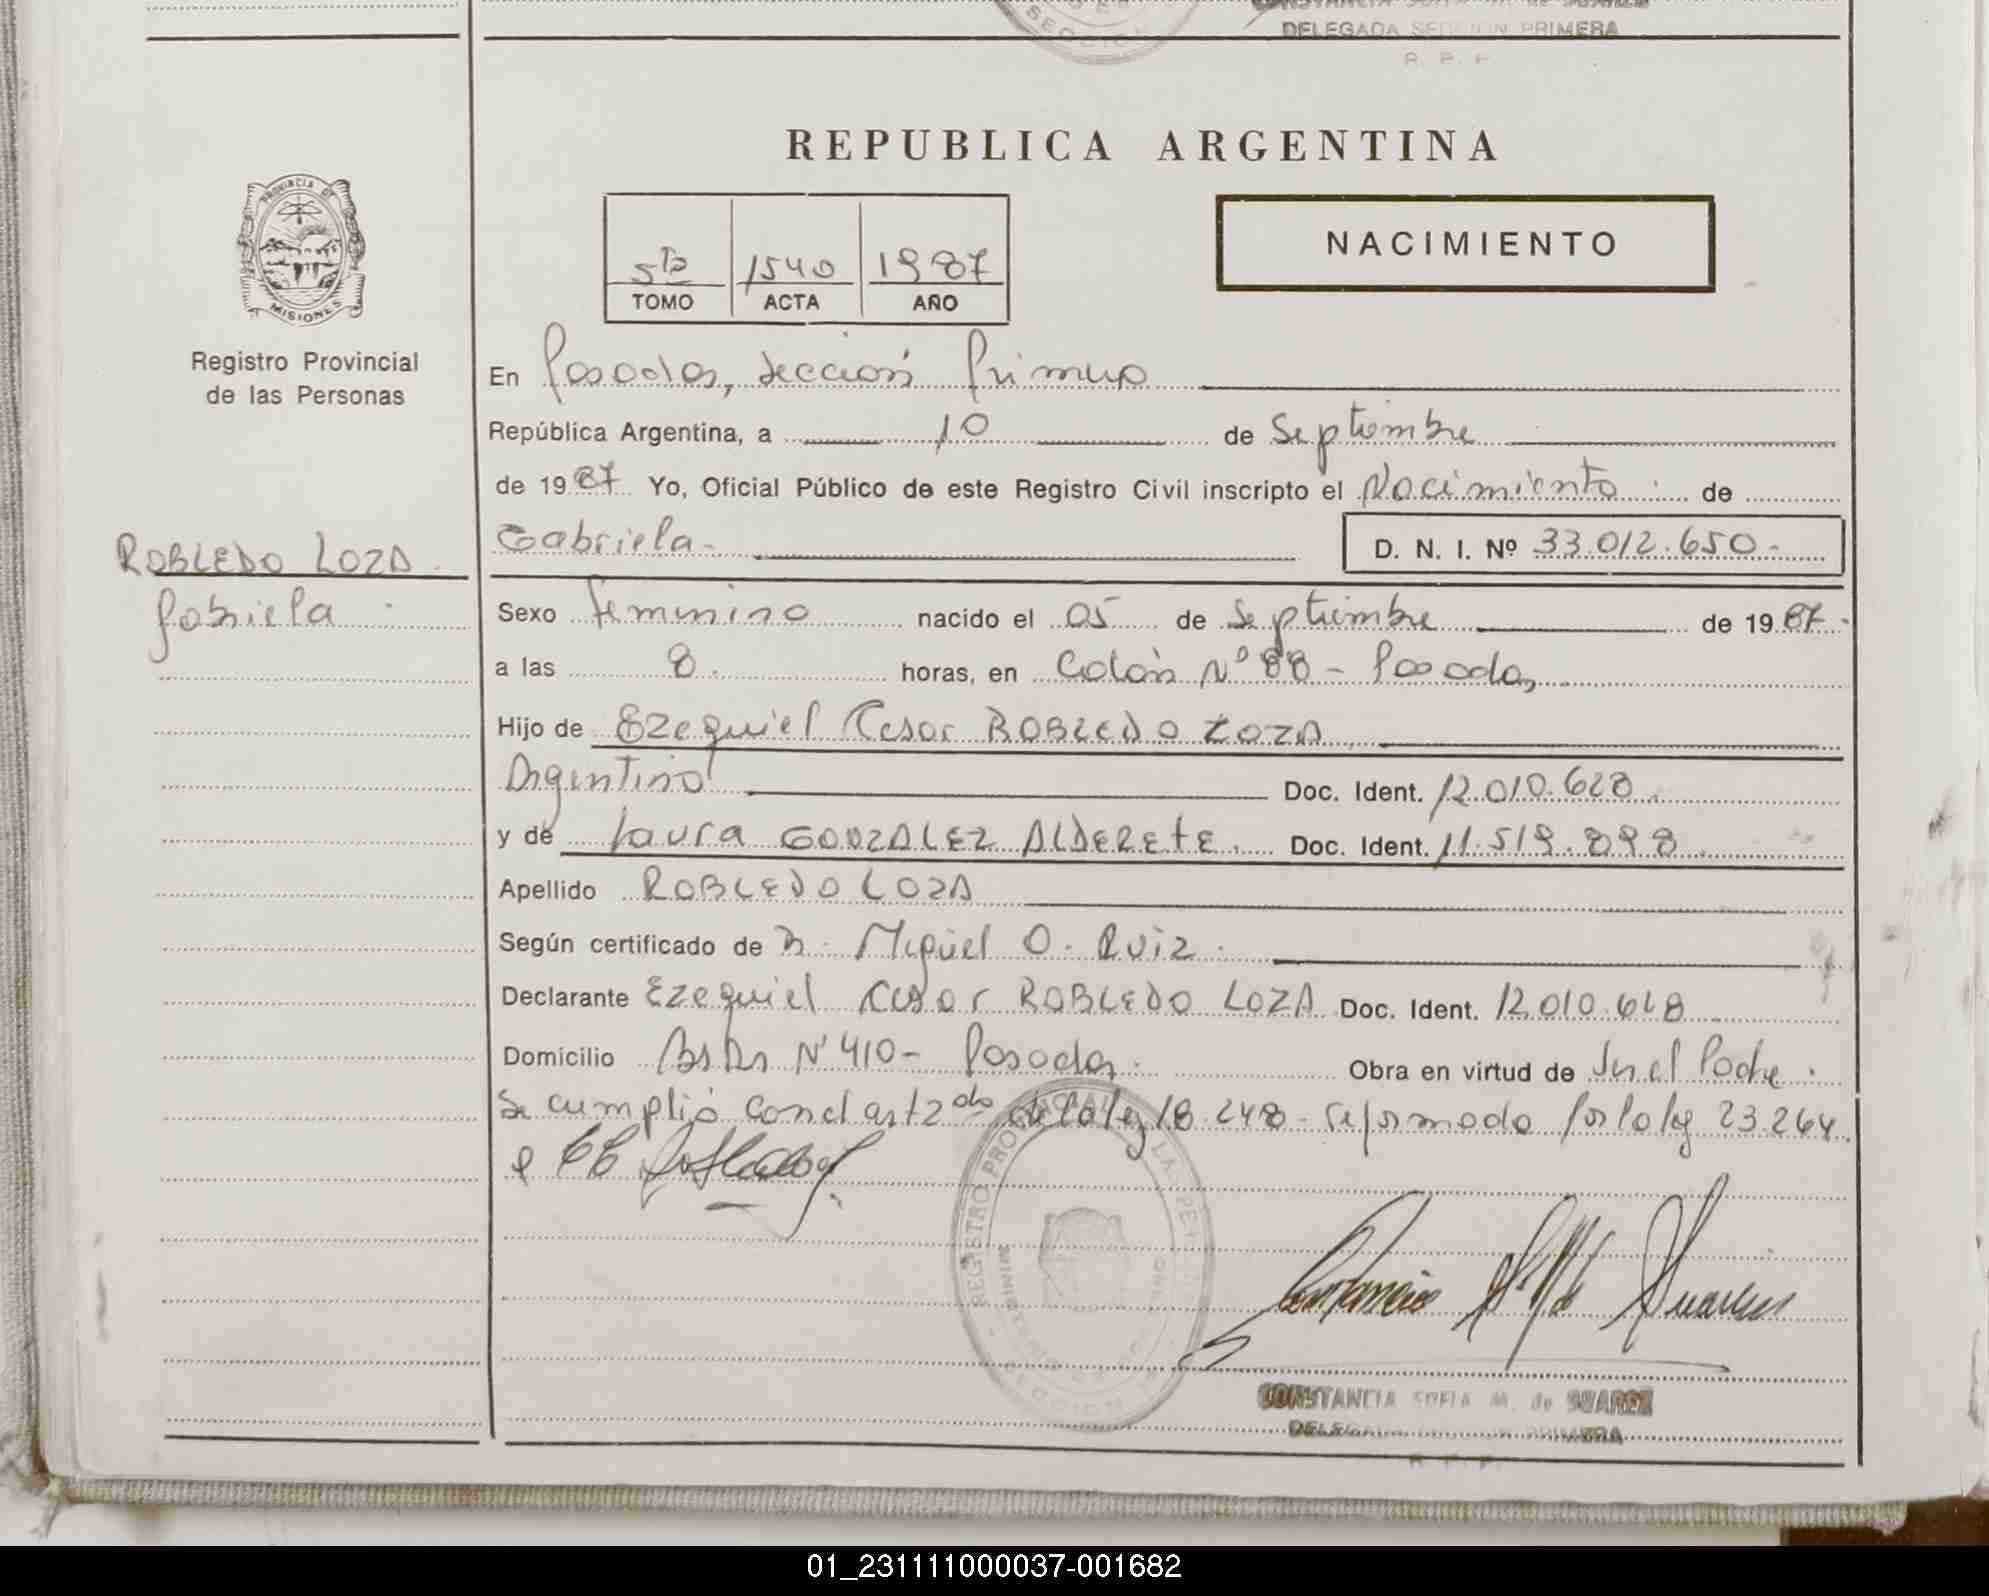 DELEGADA SECCION PRIMERA
R. P. P.
REPUBLICA ARGENTINA
PROVINCIA DE MISIONES
Registro Provincial
de las Personas
5to 1540 1987
TOMO ACTA AÑO
NACIMIENTO
En Posadas, Sección Primera
República Argentina, a 10 de Septiembre
de 1987. Yo, Oficial Público de este Registro Civil inscripto el Nacimiento de
ROBLEDO LOZA
Gabriela
Gabriela- D. N. I. Nº 33.012.650-
Sexo femenino nacido el 05 de Septiembre de 1987.
a las 8. horas, en Colón Nº 88 - Posadas
Hijo de Ezequiel Cesar ROBLEDO LOZA
Argentino Doc. Ident. 12.010.628.
y de Laura GONZALEZ ALDERETE. Doc. Ident. 11.519.898.
Apellido ROBLEDO LOZA
Según certificado de Dr. Miguel O. Ruiz.
Declarante Ezequiel Cesar ROBLEDO LOZA Doc. Ident. 12.010.628
Domicilio Bs As Nº 410- Posadas. Obra en virtud de Ser el Padre.
Se cumplió con el art 2do de la ley 18.248 - reformada por la ley 23.264.
REGISTRO PROVINCIAL DE LAS PERSONAS
CONSTANCIA SOFIA M. de SUAREZ
DELEGADA SECCION PRIMERA
R. P. P.
01_231111000037-001682